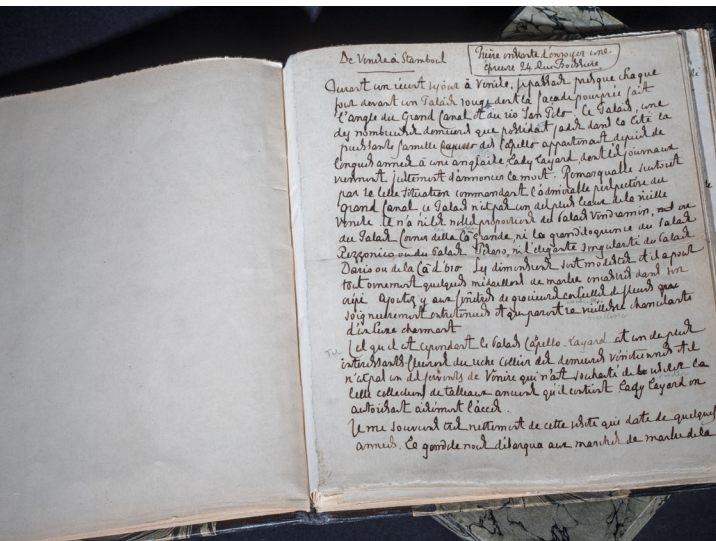 De Venise à Stamboul
Prière instante d'envoyer une
épreuve 24 Rue Boissière
Durant un récent séjour à Venise, je passais presque chaque
jour devant un Palais rouge dont la façade pourprée fait
l'angle du Grand Canal et du rio San Polo. Ce Palais, une
des nombreuses demeures que possédait jadis dans la cité la
puissante famille des Capello appartenait depuis de
longues années à une Anglaise, Lady Layard, dont les journaux
viennent justement d'annoncer la mort. Remarquable surtout
par sa belle situation commandant l'admirable perspective du
grand Canal, ce Palais n'est pas un des plus beaux de la vieille
Venise. Il n'a ni les nobles proportions du Palais Vendramin, ou
du Palais Corner della Cà grande, ni la grandiloquence du Palais
Rezzonico ou du Palais Pesaro, ni l'élégante singularité du Palais
Dario ou de la Cà d'oro. Ses dimensions sont modestes et il a pour
tout ornement quelques médaillons de marbre encastrés dans son
crépi. Ajoutez y aux fenêtres de gracieuses corbeilles de fleurs que
soigneusement entretenues et qui parent sa vieillesse
d'un luxe charmant
Tel qu'il est cependant le Palais Capello-Layard est un des plus
intéressants fleurons du riche collier des demeures vénitiennes et il
n'est pas un des fervents de Venise qui n'ait souhaité de visiter la
belle collection de tableaux anciens qu'il contient Lady Layard en
autorisant aisément l'accès.
Je me souviens très nettement de cette visite qui date de quelques
années. La gondole nous débarqua aux marches de marbre de la